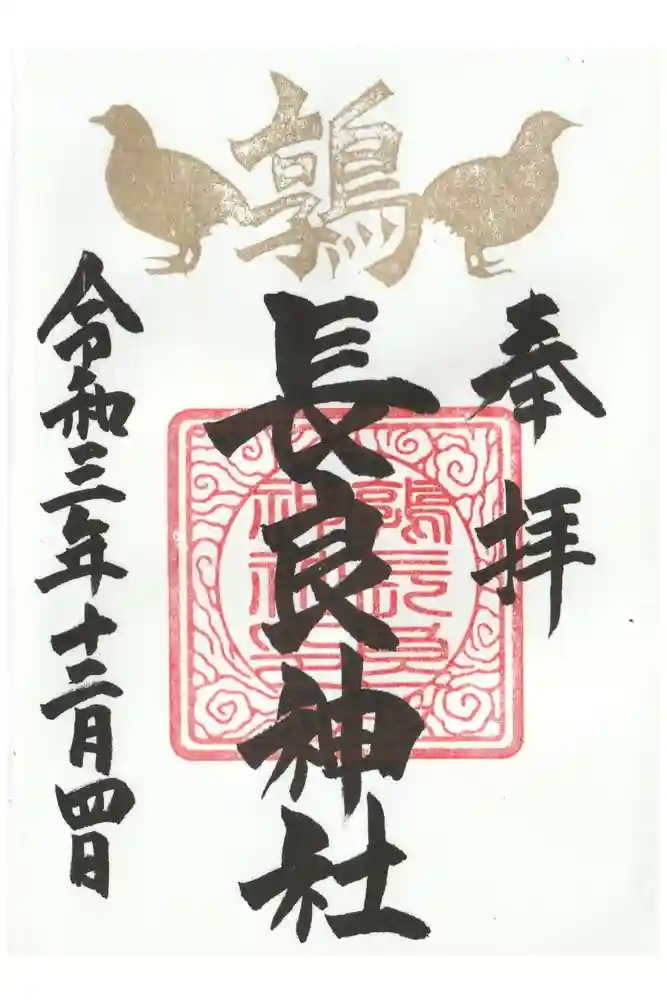 鶉
奉拝
長良神社
令和三年十二月四日
鶉長良
神社印